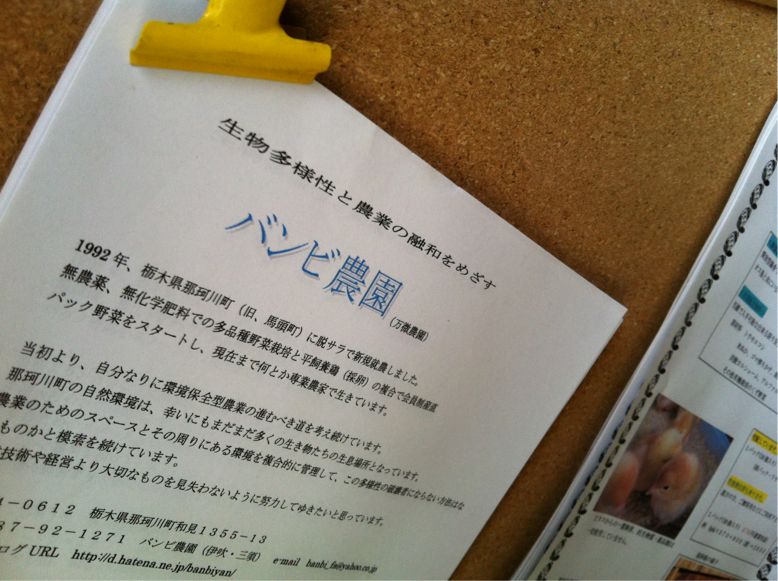 生物多様性と農業の融和をめざす
バンビ農園（万微農園）
1992年、栃木県那珂川町（旧、馬頭町）に脱サラで新規就農しました。
無農薬、無化学肥料での多品種野菜栽培と平飼養鶏（採卵）の複合で会員制産直
パック野菜をスタートし、現在まで何とか専業農家で生きています。
当初より、自分なりに環境保全型農業の進むべき道を考え続けています。
那珂川町の自然環境は、幸いにもまだまだ多くの生き物たちの生息場所となっています。
農業のためのスペースとその周りにある環境を複合的に管理して、この多様性の破壊者にならない方法はな
ものかと模索を続けています。
技術や経営より大切なものを見失わないように努力してゆきたいと思っています。
-0612 栃木県那珂川町和見1355-13
87-92-1271 バンビ農園（伊吹・三須） e-mail banbi_fa@yahoo.co.jp
ログURL http://d.hatena.ne.jp/banbiyan/